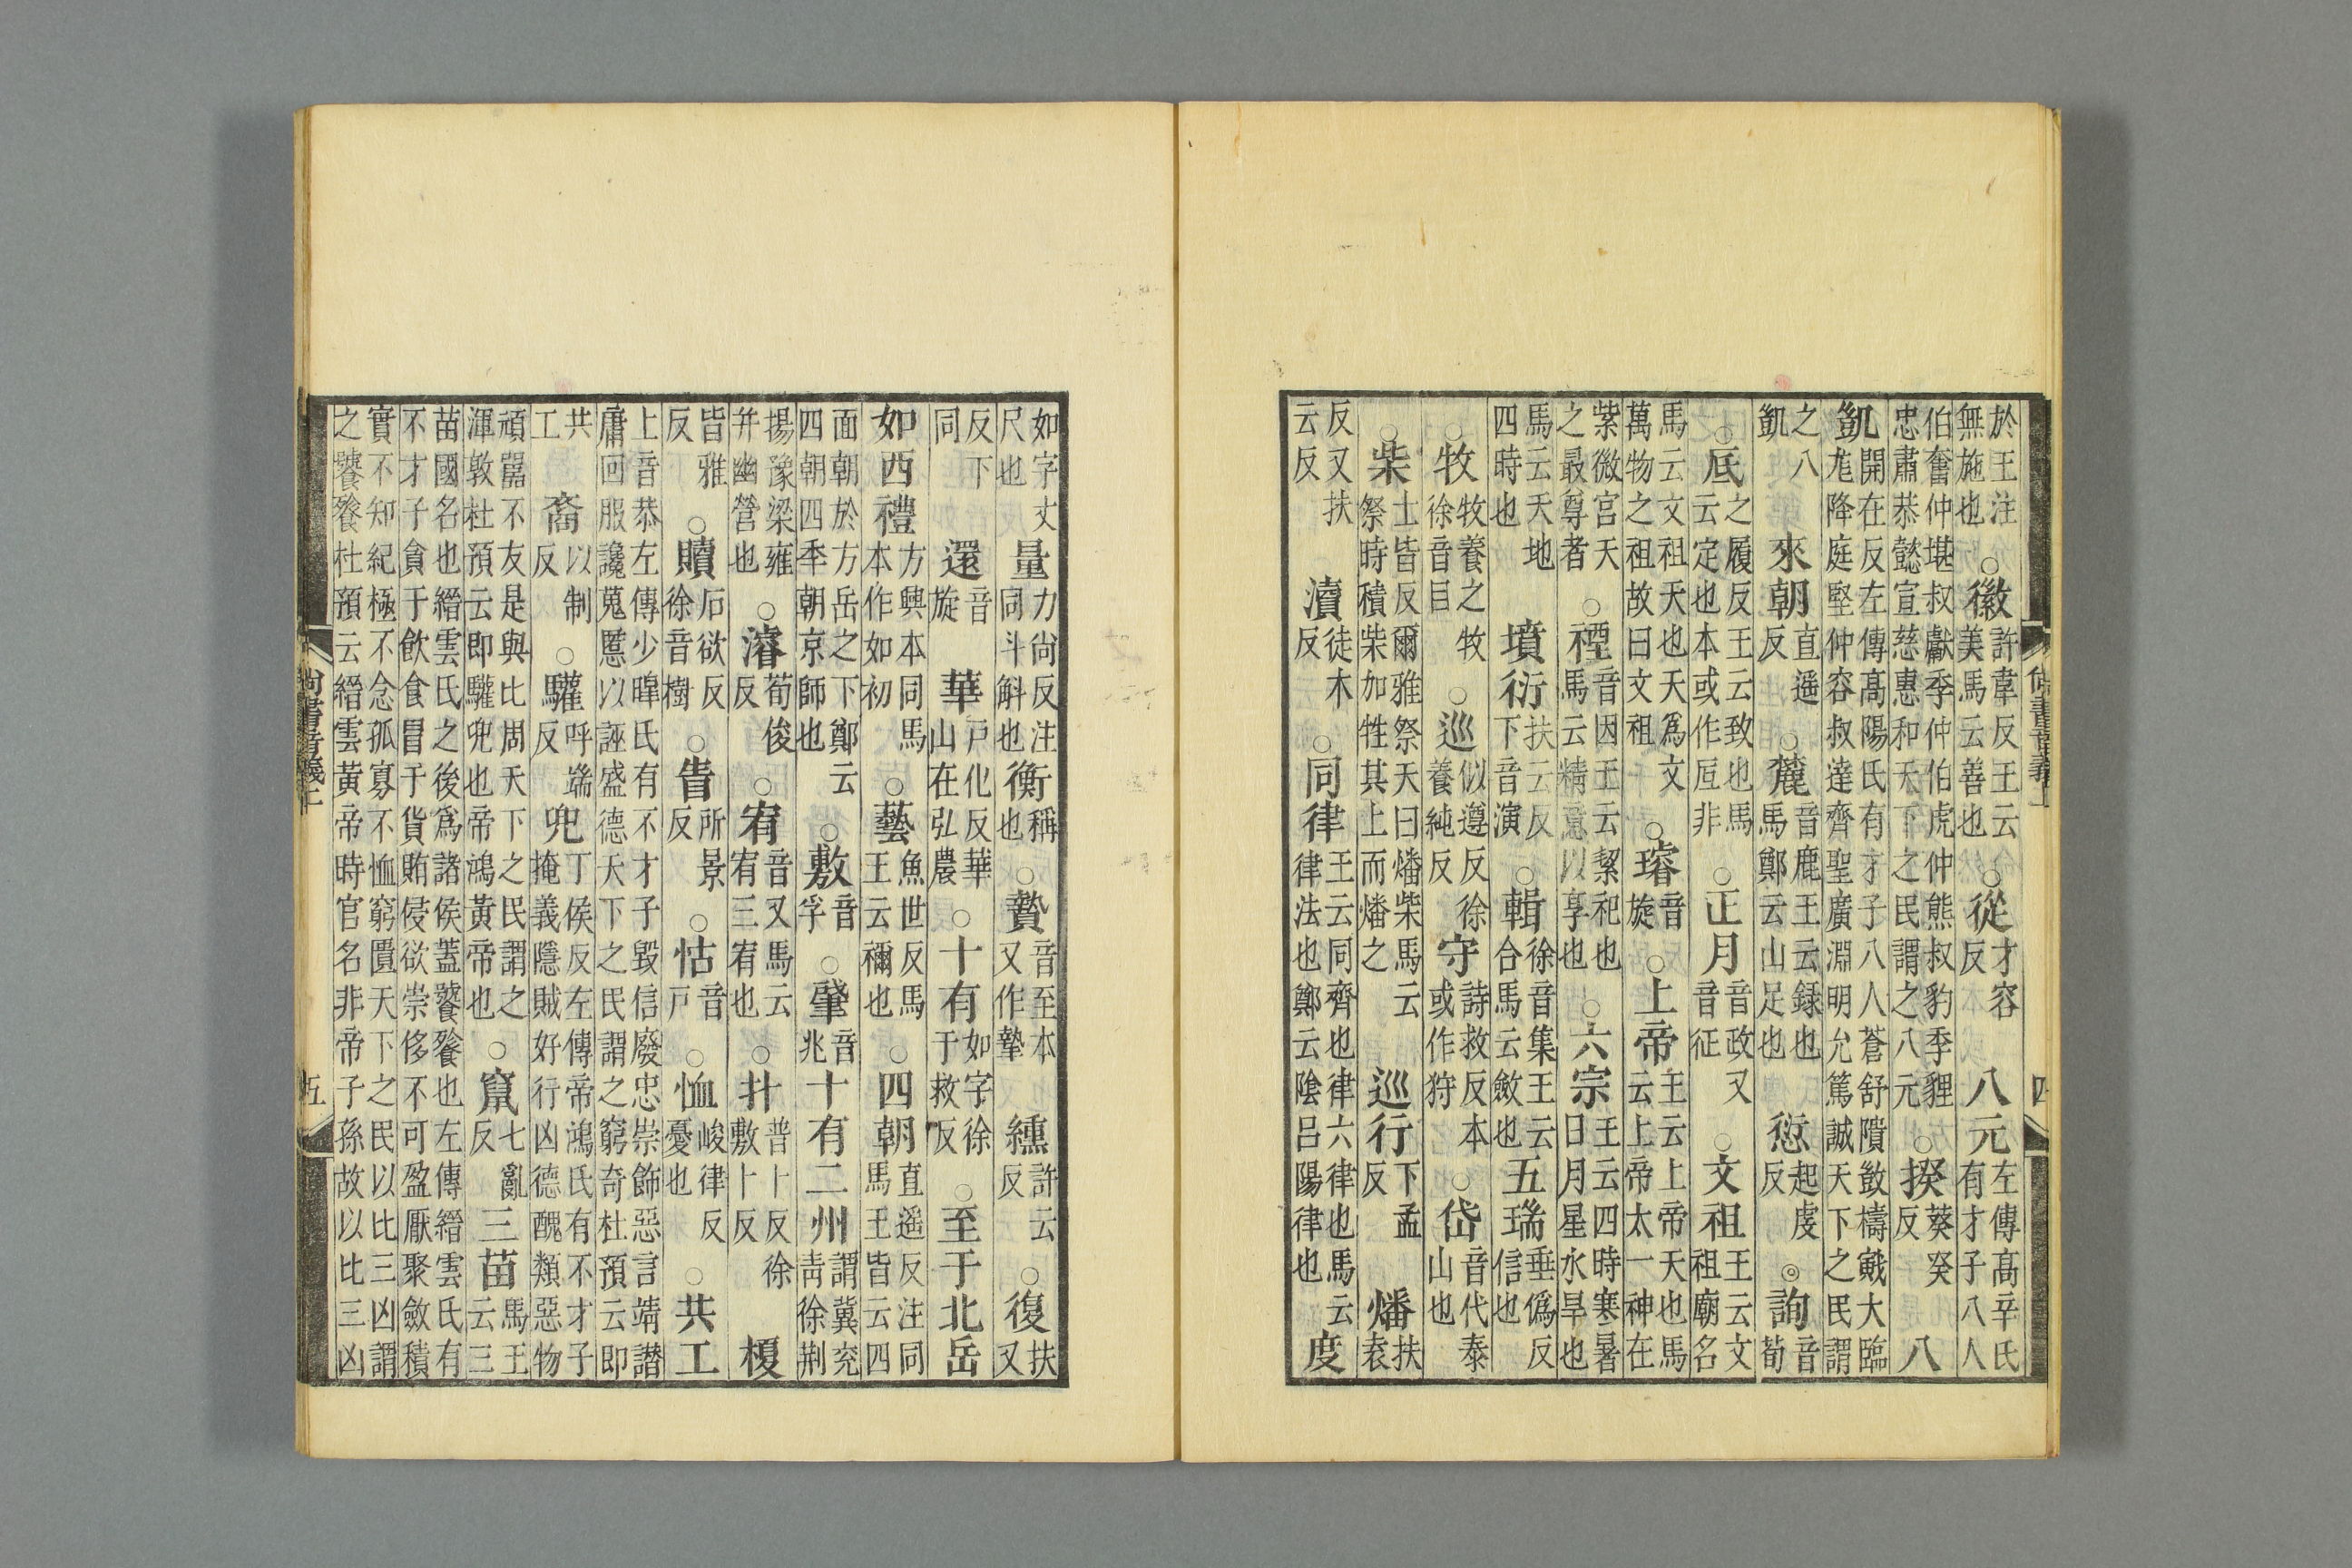 於王注無施也○徽許韋反王云美馬云善也○從才容反八元左傳高辛氏有才子八人
伯奮仲堪叔獻季仲伯虎仲熊叔豹季貍忠肅恭懿宣慈惠和天下之民謂之八元○揆葵癸反八
凱開在反左傳髙陽氏有才子八人蒼舒隤敳檮戭大臨尨降庭堅仲容叔達齊聖廣淵明允篤誠天下之民謂
之八凱來朝直遥反○麓音鹿王云録也馬鄭云山足也愆起虔反◎詢音荀
○厎之履反王云致也馬云定也本或作㡳非○正月音政又音征○文祖王云文祖廟名
馬云文祖天也天爲文萬物之祖故曰文祖○璿音旋○上帝王云上帝天也馬云上帝太一神在
紫微宫天之最尊者○禋音因王云絜祀也馬云精意以享也○六宗王云四時寒暑日月星水旱也
馬云天地四時也墳衍扶云反下音演○輯徐音集王云合馬云斂也五瑞垂僞反信也
○牧牧養之牧徐音目○巡似遵反徐養純反守詩救反本或作狩○岱音代泰山也
○柴士皆反爾雅祭天曰燔柴馬云祭時積柴加牲其上而燔之巡行下孟反燔扶袁
反又扶云反瀆徒木反○同律王云同齊也律六律也馬云律法也鄭云陰吕陽律也度
尚書音義上 四
如字丈尺也量力尚反注同斗斛也衡稱也○贄音至本又作摯纁許云反○復扶又
反下同還音旋華戸化反華山在弘農○十有如字徐于救反○至于北岳
如西禮方興本同馬本作如初○藝魚世反馬王云禰也○四朝直遥反注同馬王皆云四
面朝於方岳之下鄭云四朝四季朝京師也○敷音孚○肇音兆十有二州謂冀兖青徐荆
揚豫梁雍并幽營也○濬荀俊反○宥音又馬云宥三宥也○扑普卜反徐敷卜反榎
皆雅反○贖石欲反徐音樹○眚所景反○怙音戸○恤峻律反憂也○共工
上音恭左傳少暤氏有不才子毁信廢忠崇飾惡言靖譖庸回服讒蒐慝以誣盛德天下之民謂之窮奇杜預云即
共工裔以制反○驩呼端反兜丁侯反左傳帝鴻氏有不才子掩義隱賊好行凶德醜類惡物
頑嚚不友是與比周天下之民謂之渾敦杜預云即驩兜也帝鴻黄帝也○竄七亂反三苗馬王云三
苗國名也縉雲氏之後爲諸侯蓋饕餮也左傳縉雲氏有不才子貪于飲食冒于貨賄侵欲崇侈不可盈厭聚斂積
實不知紀極不念孤寡不恤窮匱天下之民以比三凶謂之饕餮杜預云縉雲黄帝時官名非帝子孫故以比三凶
尚書音義上 五